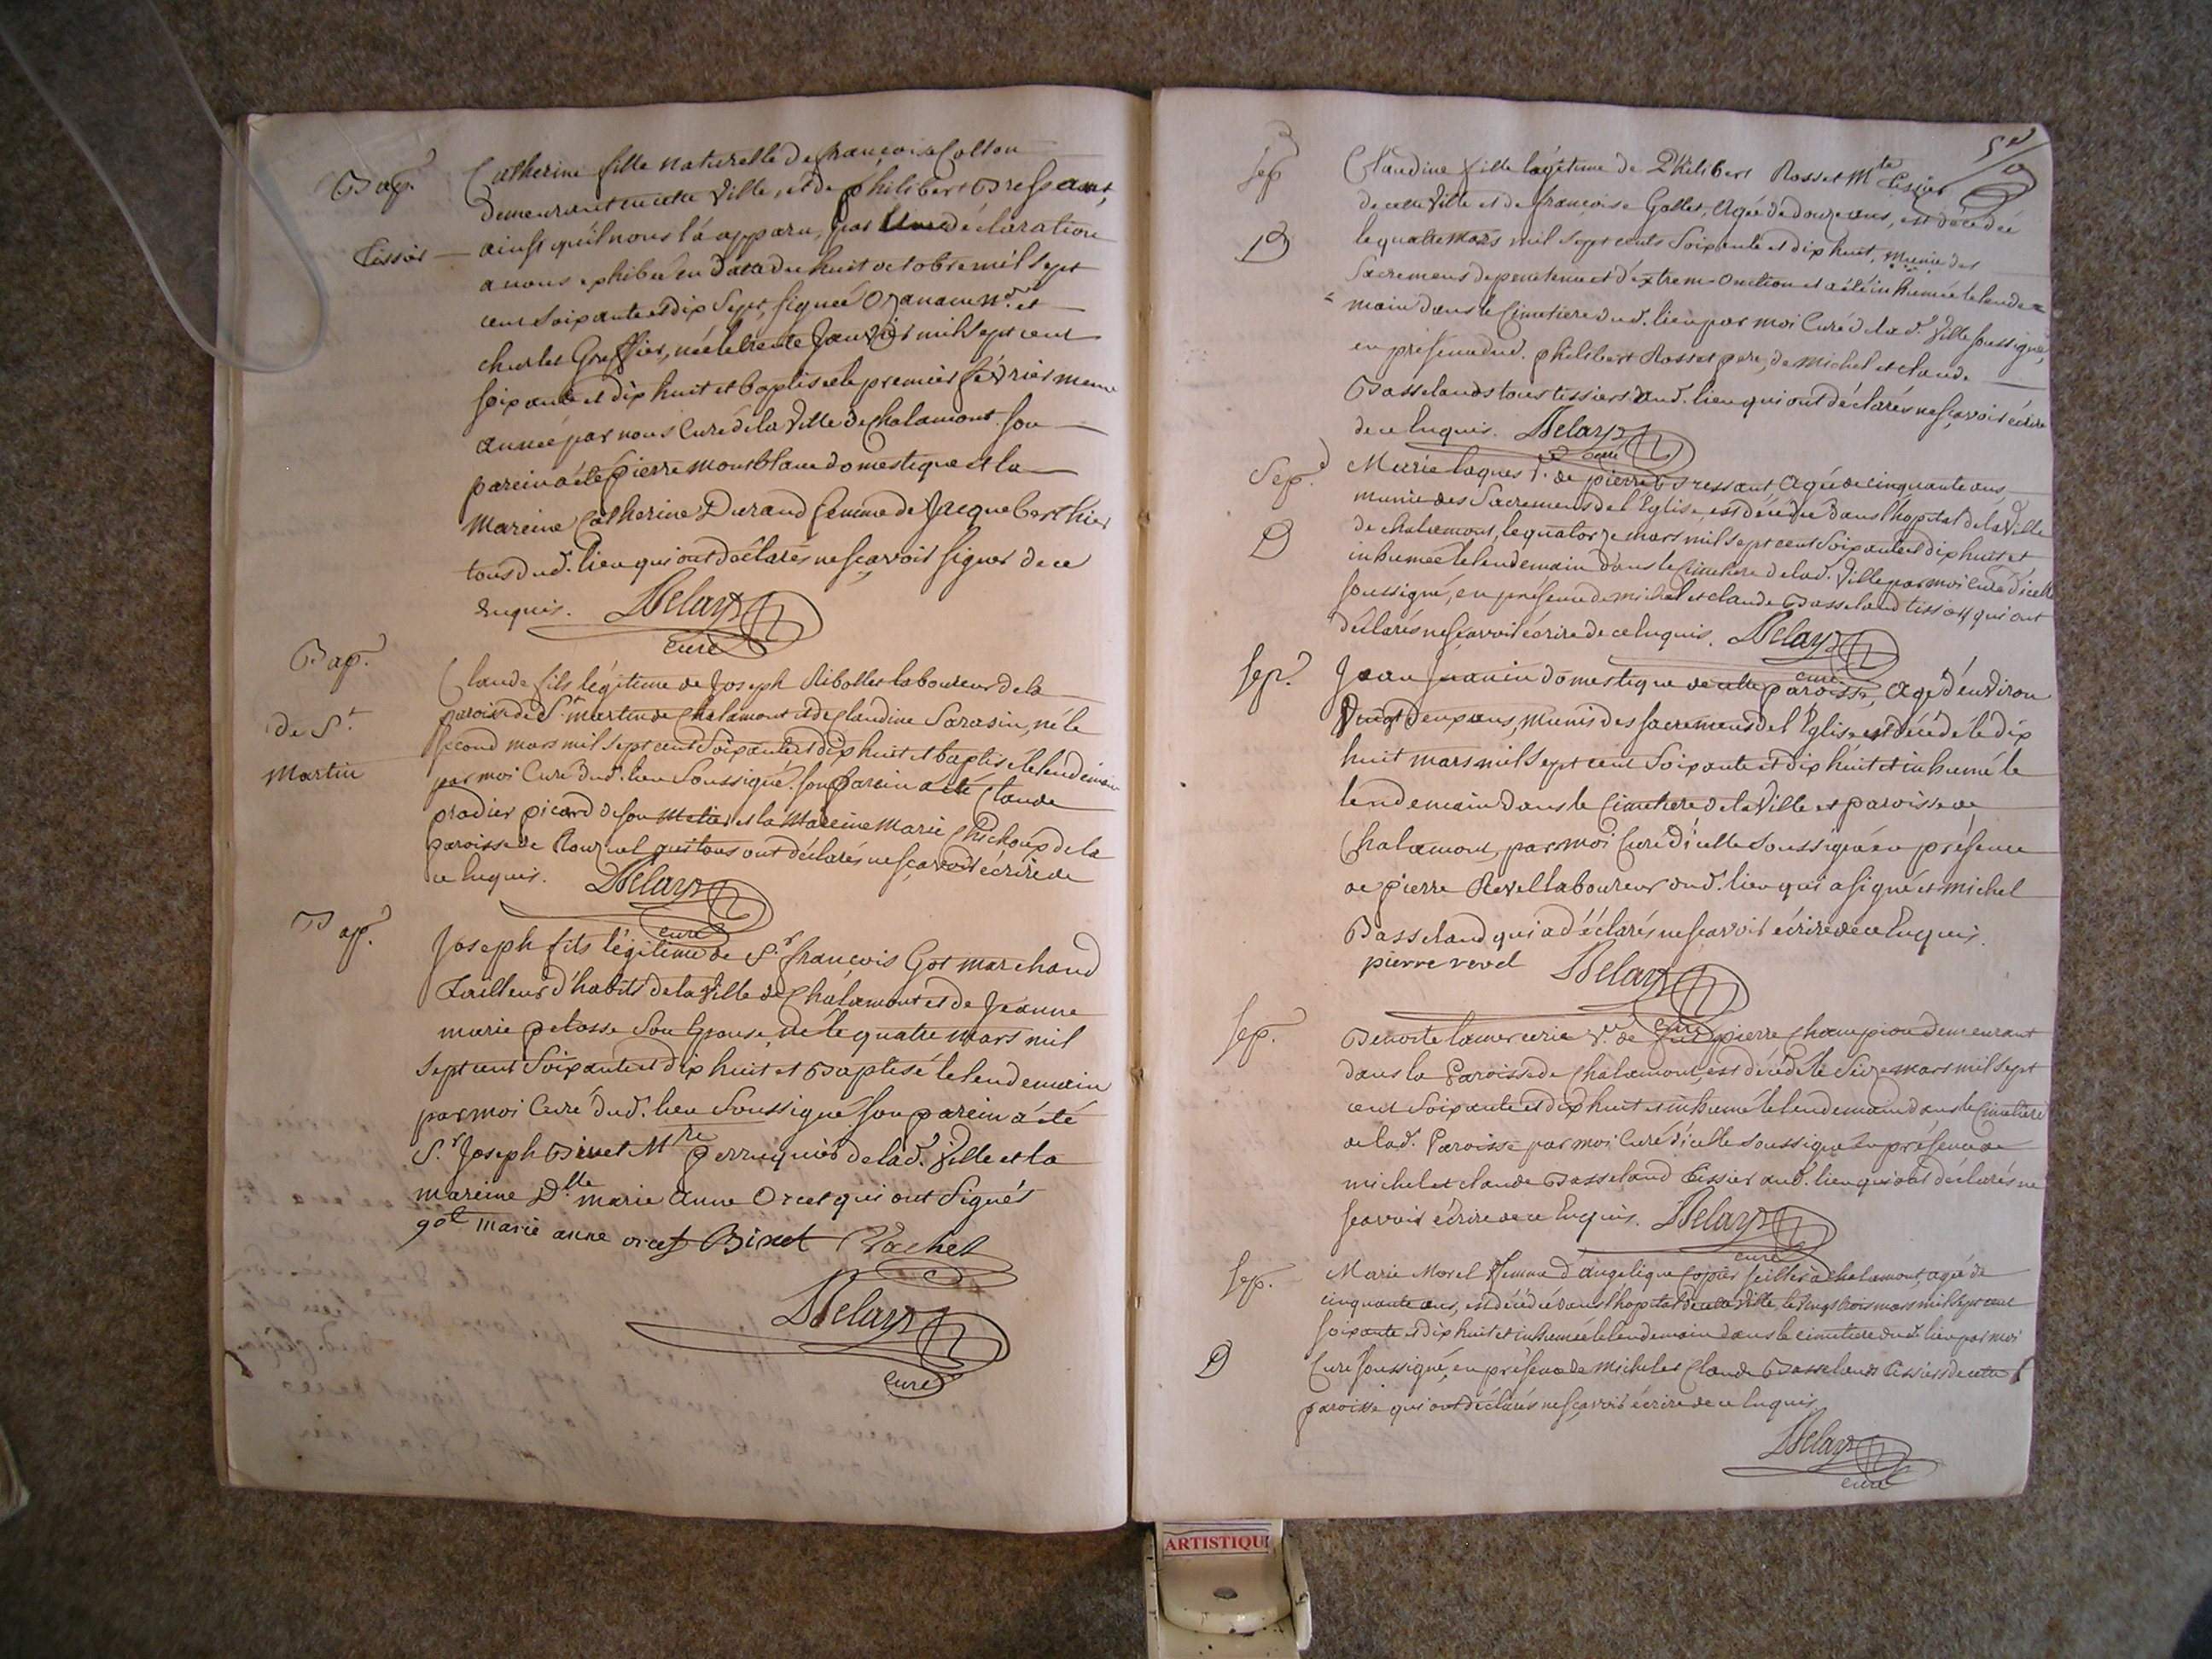 Bap.
Catherine fille naturelle de françoise Collon
demeurant en cette Ville, et de philibert Bressant,
Tissier
ainsy quil nous l'a apparu, par une déclaration
a nous exhibée en datte du huit octobre mil sept
cent soixante et dix sept, signée et
charles Greffier, née le trente Janvier mil sept cent
soixante et dix huit et baptisée le premier février meme
année par nous Curé de la Ville de Chalamont. son
parein a été pierre montblanc domestique et la
mareine Catherine Durand femme de Jacque Berthier
tous dud. lieu qui ont déclarés ne sçavoir signer de ce
Enquis. Delay
curé
Bap.
de St.
martin
Claude fils légitime de Joseph Ribollet laboureur de la
paroisse de St. martin de Chalamont et de Claudine Sarasin, né le
second mars mil sept cent soixante et dix huit et baptisé le lendemain
par moi Curé dud. lieu soussigné. son parein a été Claude
pradier picard de son metier et la mareine marie de la
paroisse de qui tous ont déclarés ne sçavoir écrire de
ce Enquis. Delay
curé
Bap.
Joseph fils légitime de Sr. françois Got marchand
Tailleur d'habits de la Ville de Chalamont et de Jeanne
marie pelosse son Epouse, né le quatre mars mil
sept cent soixante et dix huit et Baptisé le lendemain
par moi Curé dud. lieu soussigné son parein a été
Sr. Joseph Binet Mtre perruquier de lad. Ville et la
mareine Dlle marie anne Orcet qui ont signés
got marie anne orcet Binet Vachet
Delay
curé
Sep
Claudine fille légitime de Philibert Rosset Mte Tissier
de cette Ville et de françoise Gollet, agée de douze ans, est décédée
D
le quatre mars mil sept cents soixante et dix huit, munie des
Sacremens de penitence et d'extrem-onction et a été inhumée le lende=
=main dans le Cimetiere dud. lieu par moi Curé de lad. Ville soussigné,
en présence dud. philibert Rosset pere, de michel et claude
Basseland tous tissiers dud. lieu qui ont déclarés ne sçavoir écrire
de ce Enquis. Delay
curé
Sep.
Marie laques V. de pierre Bressant agée de cinquante ans,
munie des Sacremens de l'Eglise, est décédée dans l'hopital de la Ville
D
de chalamont, le quatorze mars mil sept cent soixante et dix huit et
inhumée le lendemain dans le Cimetiere de lad. Ville par moi Curé d'icelle
soussigné, en présence de michel et claude Basseland qui ont
déclarés ne sçavoir écrire de ce Enquis. Delay
curé
Sep.
Jean Juanin domestique de cette paroisse, agé d'environ
Vingt deux ans, munis des sacremens de l'Eglise est décédé le dix
huit mars mil sept cent soixante et dix huit et inhumé le
lendemain dans le Cimetiere de la Ville et paroisse de
Chalamont, par moi Curé d'icelle soussigné en présence
de pierre Revel laboureur dud. lieu qui a signé et michel
Basseland qui a déclarés ne sçavoir écrire de ce Enquis.
pierre revel Delay
curé
Sep.
Benoite lamercerie Ve. de pierre Champion demeurant
dans la Paroisse de Chalamont, est décédé le seize mars mil sept
cent soixante et dix huit et inhumé le lendemain dans le Cimetiere
de lad. Paroisse par moi Curé d'icelle soussigné en présence de
michel et claude Basseland Tissier dud. lieu qui ont déclarés ne
sçavoir écrire de ce Enquis. Delay
curé
Sep.
Marie Morel femme d'angelique à Chalamont, agée de
cinquante ans, est décédée dans l'hopital de cette Ville, le vingt trois mars mil sept cent
soixante et dix huit et inhumée le lendemain dans le cimetiere dud. lieu par moi
D
Curé soussigné, en présence de michel et Claude Basseland Tissiers de cette
paroisse qui ont déclarés ne sçavoir écrire de ce Enquis
Delay
curé
ARTISTIQU